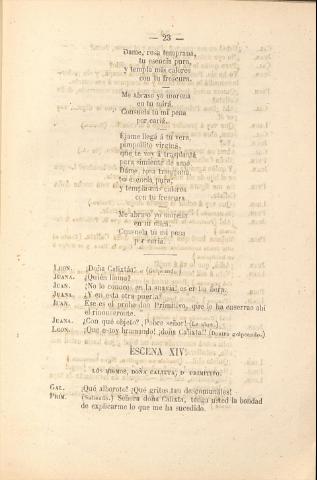 — 23 —
Dame, rosa temprana,
tu esencia pura,
y templa mis calores
con tu frescura.
Me abraso yo morena
en tu mirá.
Consuela tú mi pena
por cariá.
Ejame llegá á tu vera,
pimpollito virginá,
que te voy á trasplantá
para simiente de amó.
Dame, rosa temprana,
tu esencia pura,
y templa mis calores
con tu frescura
Me abraso yo morena
en tu mirá.
Consuela tú mi pena
por caria.
LEON. ¡Doña Calixta! (Golpeando.)
JUANA. ¿Quién llama?
JUAN. ¿No lo conoce en la es en la
JUANA. ¿Y en esta otra puerta?
JUAN. Ese es el probe don Primitivo, que lo ha encerrao ahí
el rinoceronte.
JUANA. ¿Con qué objeto? ¡Pobre señor! (Le abre.)
LEON. ¡Que estoy bramando! ¡doña Calixta!! (Dentro golpeando.)
ESCENA XIV.
LOS MISMOS, DOÑA CALIXTA, D. PRIMITIVO.
CAL. ¡Qué alboroto! ¡Qué gritos tan descomunales!
PRIM. (Saliendo.) Señora doña Calixta, tenga usted la bondad
de explicarme lo que me ha sucedido.